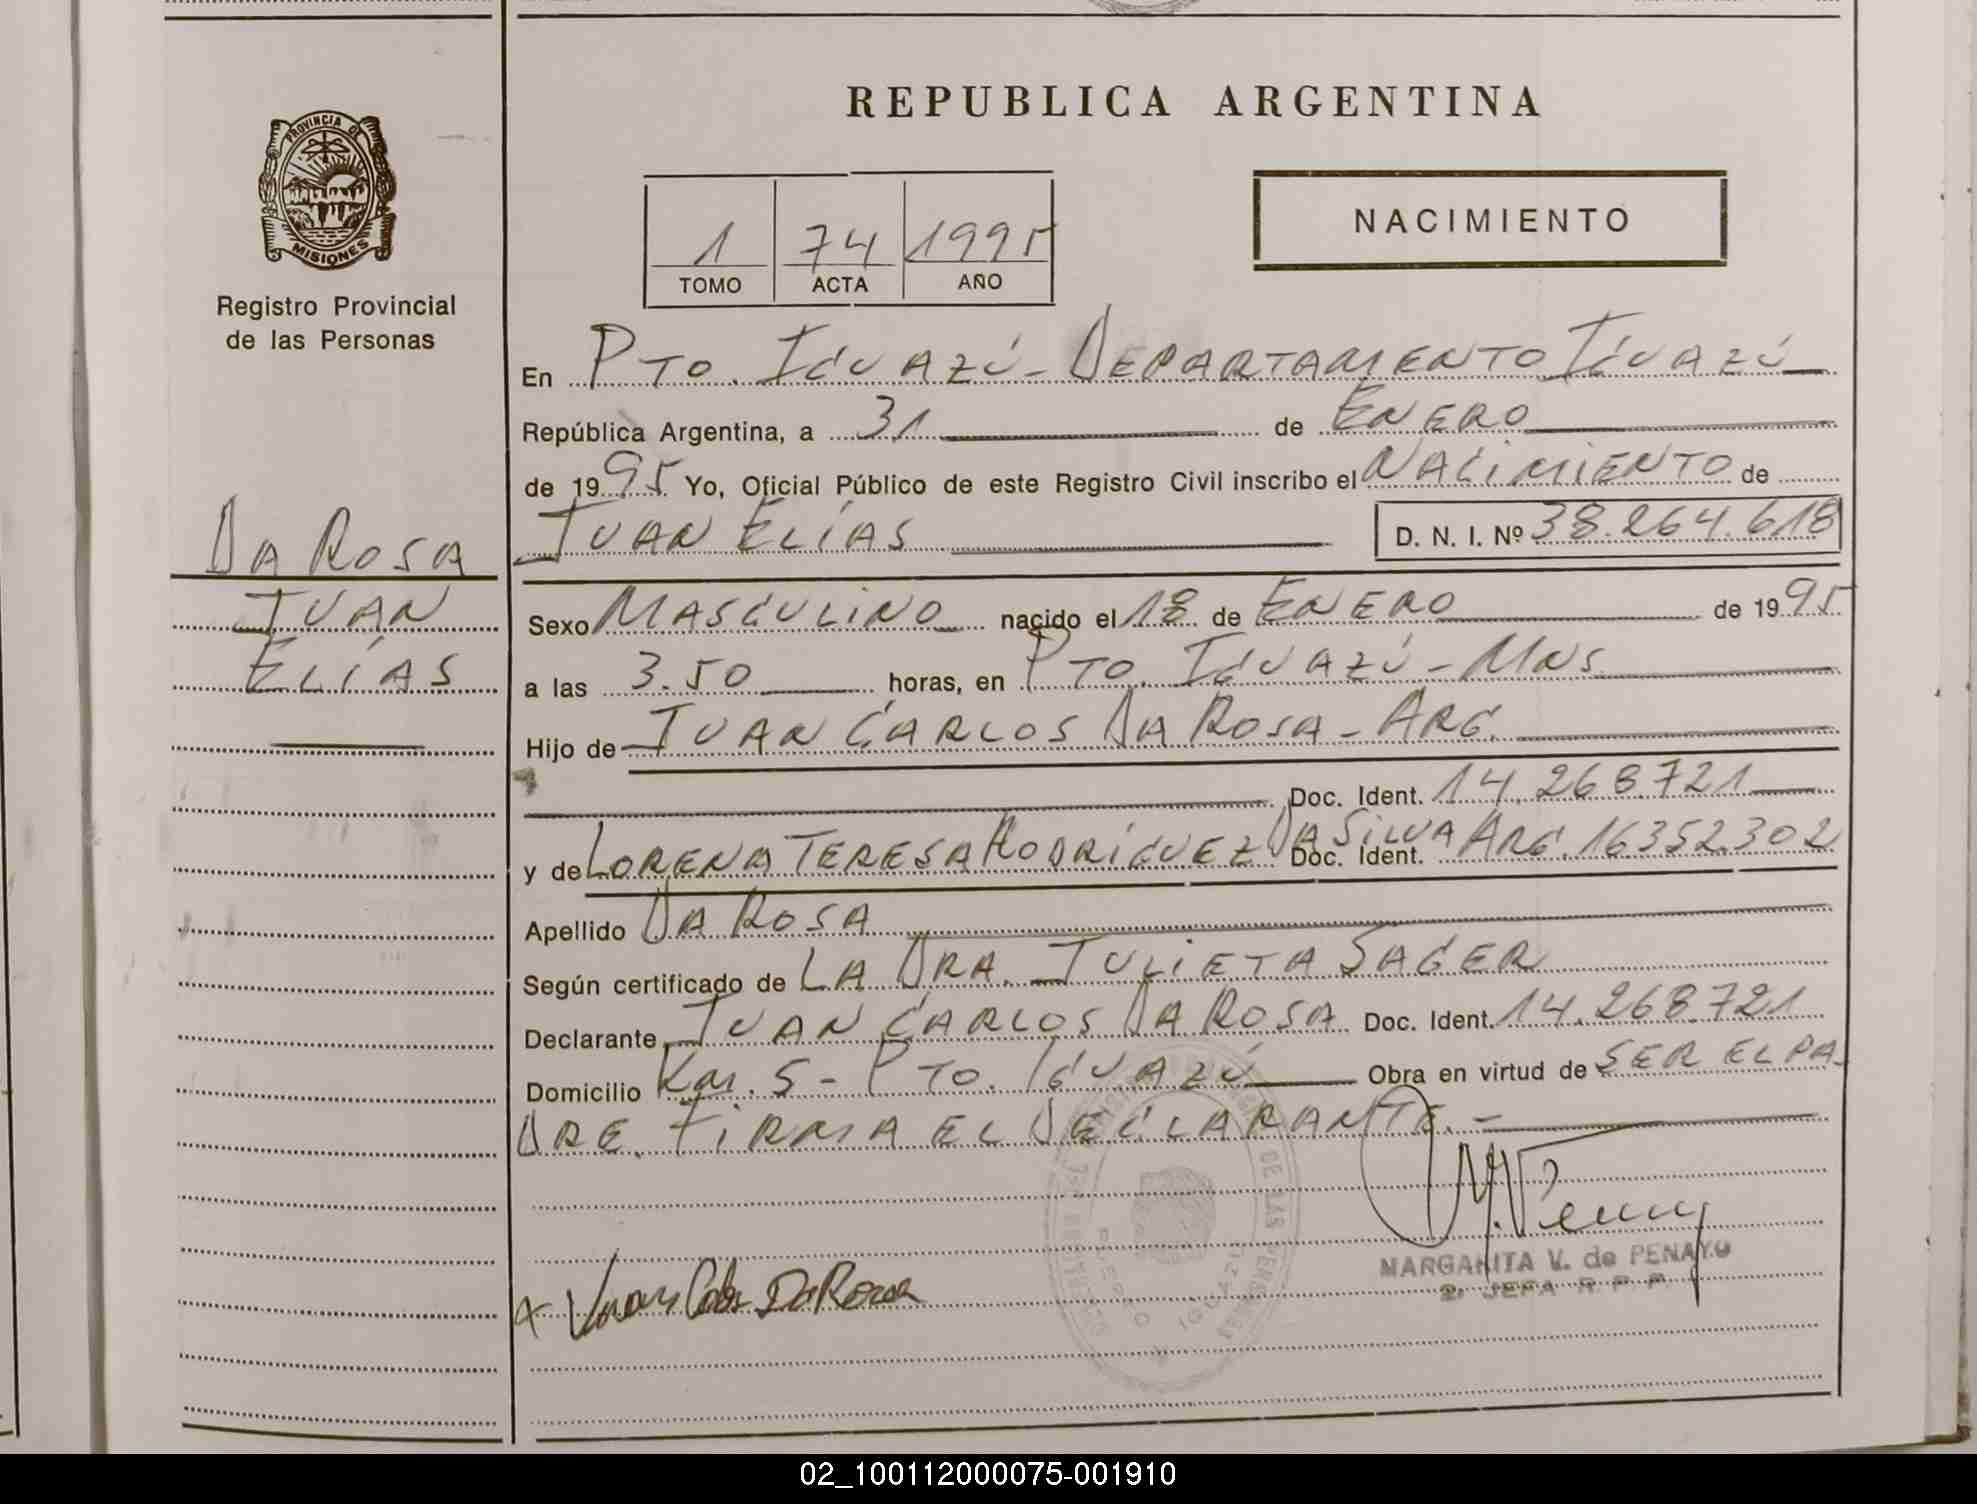 REPUBLICA ARGENTINA
PROVINCIA DE
MISIONES
Registro Provincial
de las Personas
1 74 1995
TOMO ACTA AÑO
NACIMIENTO
En PTO. IGUAZÚ - DEPARTAMENTO IGUAZÚ
República Argentina, a 31 de ENERO
de 1995 Yo, Oficial Público de este Registro Civil inscribo el NACIMIENTO de
DA ROSA
JUAN
ELÍAS
JUAN ELÍAS D. N. I. Nº 38.264.618
Sexo MASCULINO nacido el 18 de ENERO de 1995
a las 3.50 horas, en PTO. IGUAZÚ - MNS
Hijo de JUAN CARLOS DA ROSA - ARG.
Doc. Ident. 14.268.721
y de LORENA TERESA RODRÍGUEZ DA SILVA ARG. Doc. Ident. 16352.302
Apellido DA ROSA
Según certificado de LA DRA. JULIETA SAGER
Declarante JUAN CARLOS DA ROSA Doc. Ident. 14.268.721
Domicilio Km. 5 - PTO. IGUAZÚ Obra en virtud de SER EL PA-
DRE. FIRMA EL DECLARANTE. -
MARGARITA V. de PENAYO
2º JEFA R. P. P.
02_100112000075-001910